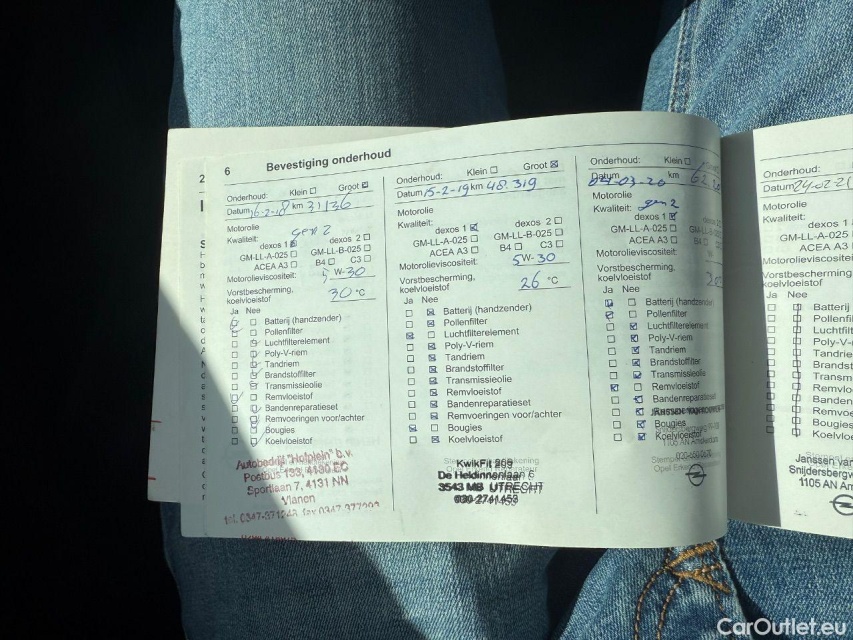 6 Bevestiging onderhoud
Onderhoud: Klein Groot
Datum 16-2-18 km 31136
Motorolie
Kwaliteit: gen 2
dexos 1 dexos 2
GM-LL-A-025 GM-LL-B-025
ACEA A3 B4 C3
Motorolieviscositeit: 5W-30
Vorstbescherming,
koelvloeistof 30 °C
Ja Nee
Batterij (handzender)
Pollenfilter
Luchtfilterelement
Poly-V-riem
Tandriem
Brandstoffilter
Transmissieolie
Remvloeistof
Bandenreparatieset
Remvoeringen voor/achter
Bougies
Koelvloeistof
Autobedrijf "Hofplein" b.v.
Postbus 133, 4130 EC
Sportlaan 7, 4131 NN
Vianen
Onderhoud: Klein Groot
Datum 15-2-19 km 48.319
Motorolie
Kwaliteit:
dexos 1 dexos 2
GM-LL-A-025 GM-LL-B-025
ACEA A3 B4 C3
Motorolieviscositeit: 5W-30
Vorstbescherming,
koelvloeistof 26 °C
Ja Nee
Batterij (handzender)
Pollenfilter
Luchtfilterelement
Poly-V-riem
Tandriem
Brandstoffilter
Transmissieolie
Remvloeistof
Bandenreparatieset
Remvoeringen voor/achter
Bougies
Koelvloeistof
KwikFit 269
3543 MB UTRECHT
030-2741453
Onderhoud: Klein
Datum 04-03-20 km
Motorolie
Kwaliteit: gen 2
dexos 1
GM-LL-A-025
ACEA A3
Motorolieviscositeit:
Vorstbescherming,
koelvloeistof
Ja Nee
Batterij (handzender)
Pollenfilter
Luchtfilterelement
Poly-V-riem
Tandriem
Brandstoffilter
Transmissieolie
Remvloeistof
Bougies
Koelvloeistof
Onderhoud:
Datum 24-02-21
Motorolie
Kwaliteit:
dexos 1
GM-LL-A-025
ACEA A3
Motorolieviscositeit
Vorstbescherming
koelvloeistof
Ja Nee
Batterij
Pollenfi
Luchtfilt
Poly-V-
Tandrie
Brandst
Transm
Remvlo
Banden
Remvoe
Bougies
Koelvloe
Janssen van
Snijdersbergw
1105 AN Am
CarOutlet.eu